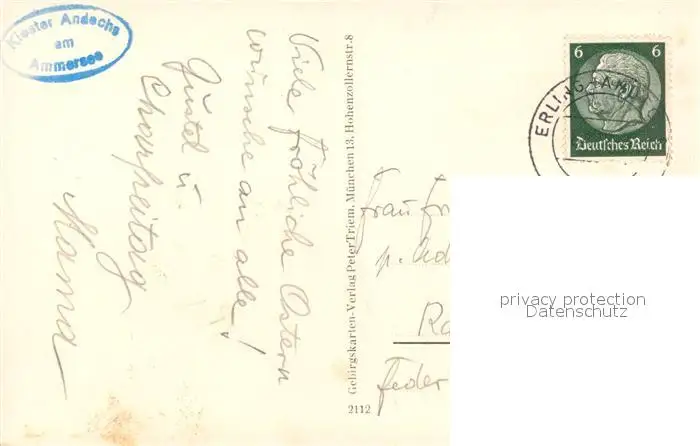 Kloster Andechs
am
Ammersee
Viele fröhliche Ostern
wünsche an alle!
Gustl u.
Mama
Charfreitag
Gebirgskarten-Verlag Peter Triem, München 13, Hohenzollernstr. 8
2112
6 6
Deutsches Reich
ERLING
Frau Fr
p. Ad
Ra
Feder
privacy protection
Datenschutz